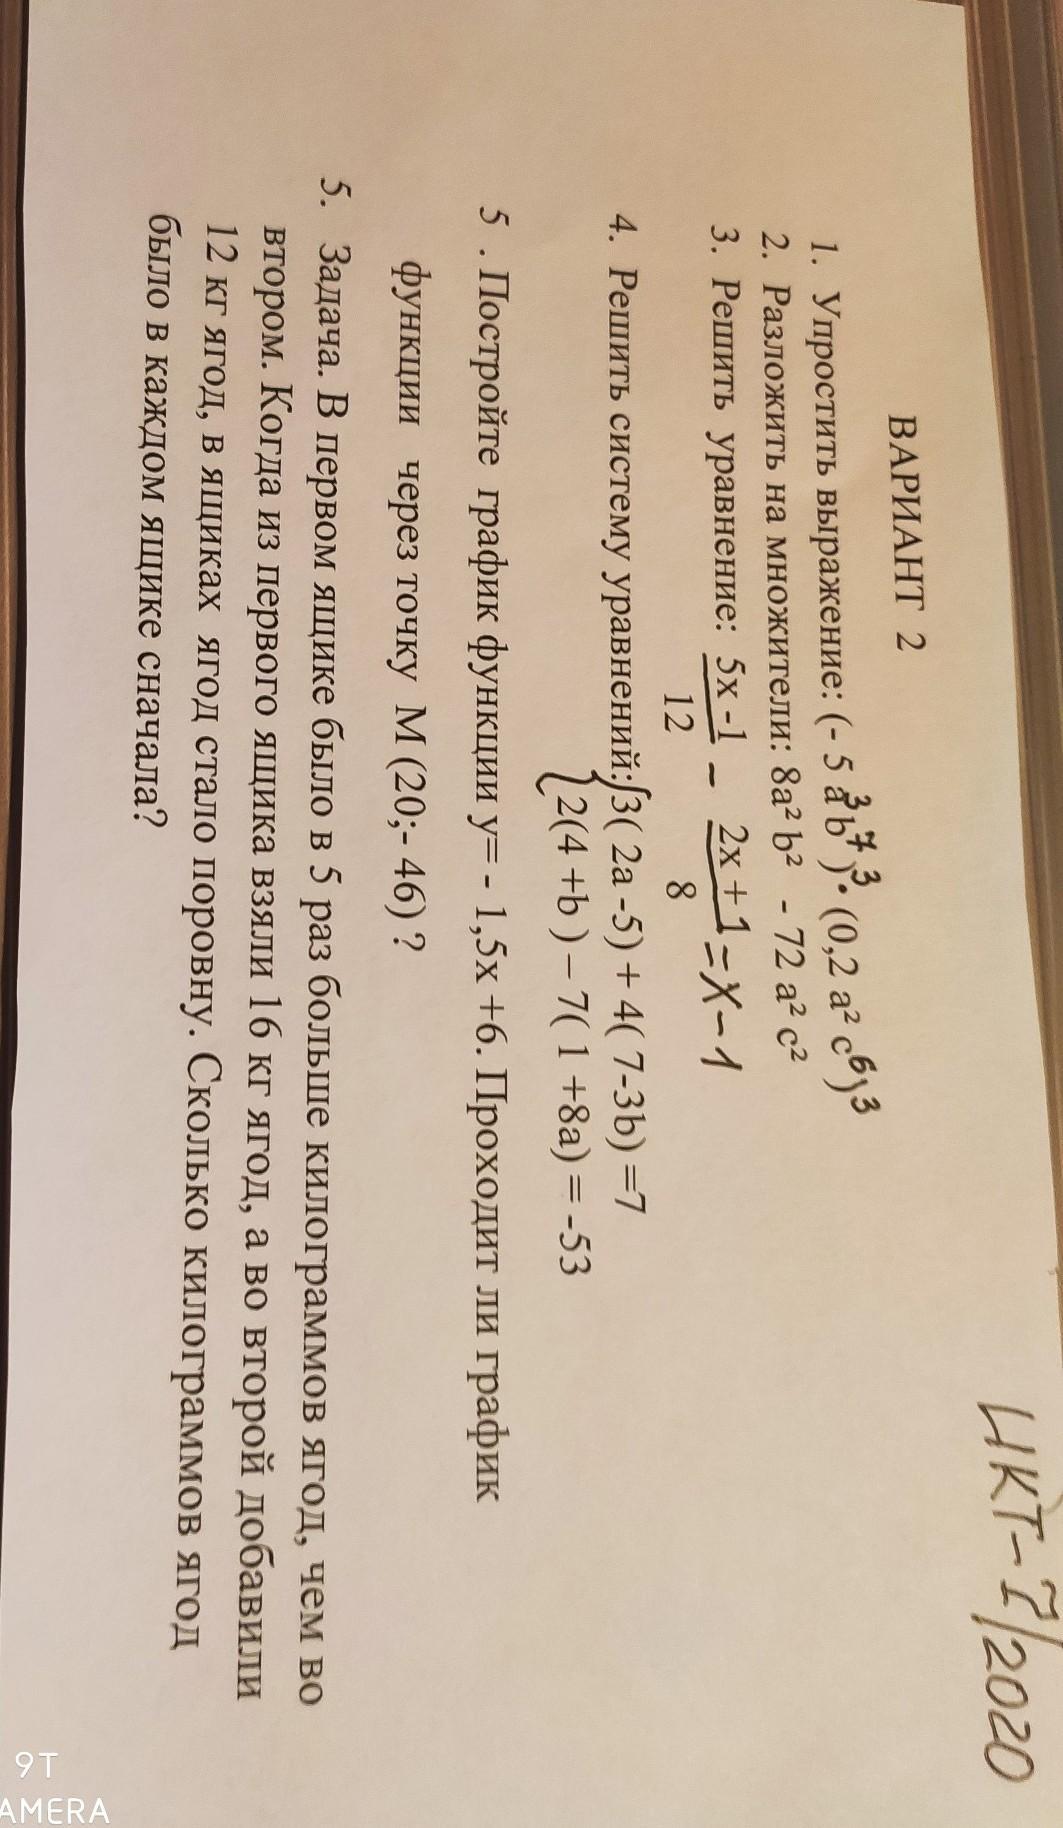 ИКТ-7/2020
ВАРИАНТ 2
1. Упростить выражение: (- 5 a³b⁷)³· (0,2 a² c⁶)³
2. Разложить на множители: 8a² b² - 72 a² c²
3. Решить уравнение: 5x -1 – 2x + 1 = x – 1
12 8
4. Решить систему уравнений:{3( 2a -5) + 4( 7-3b) =7
2(4 +b ) – 7( 1 +8a) = -53
5 . Постройте график функции y= - 1,5x +6. Проходит ли график
функции через точку М (20;- 46) ?
5. Задача. В первом ящике было в 5 раз больше килограммов ягод, чем во
втором. Когда из первого ящика взяли 16 кг ягод, а во второй добавили
12 кг ягод, в ящиках ягод стало поровну. Сколько килограммов ягод
было в каждом ящике сначала?
9T
AMERA